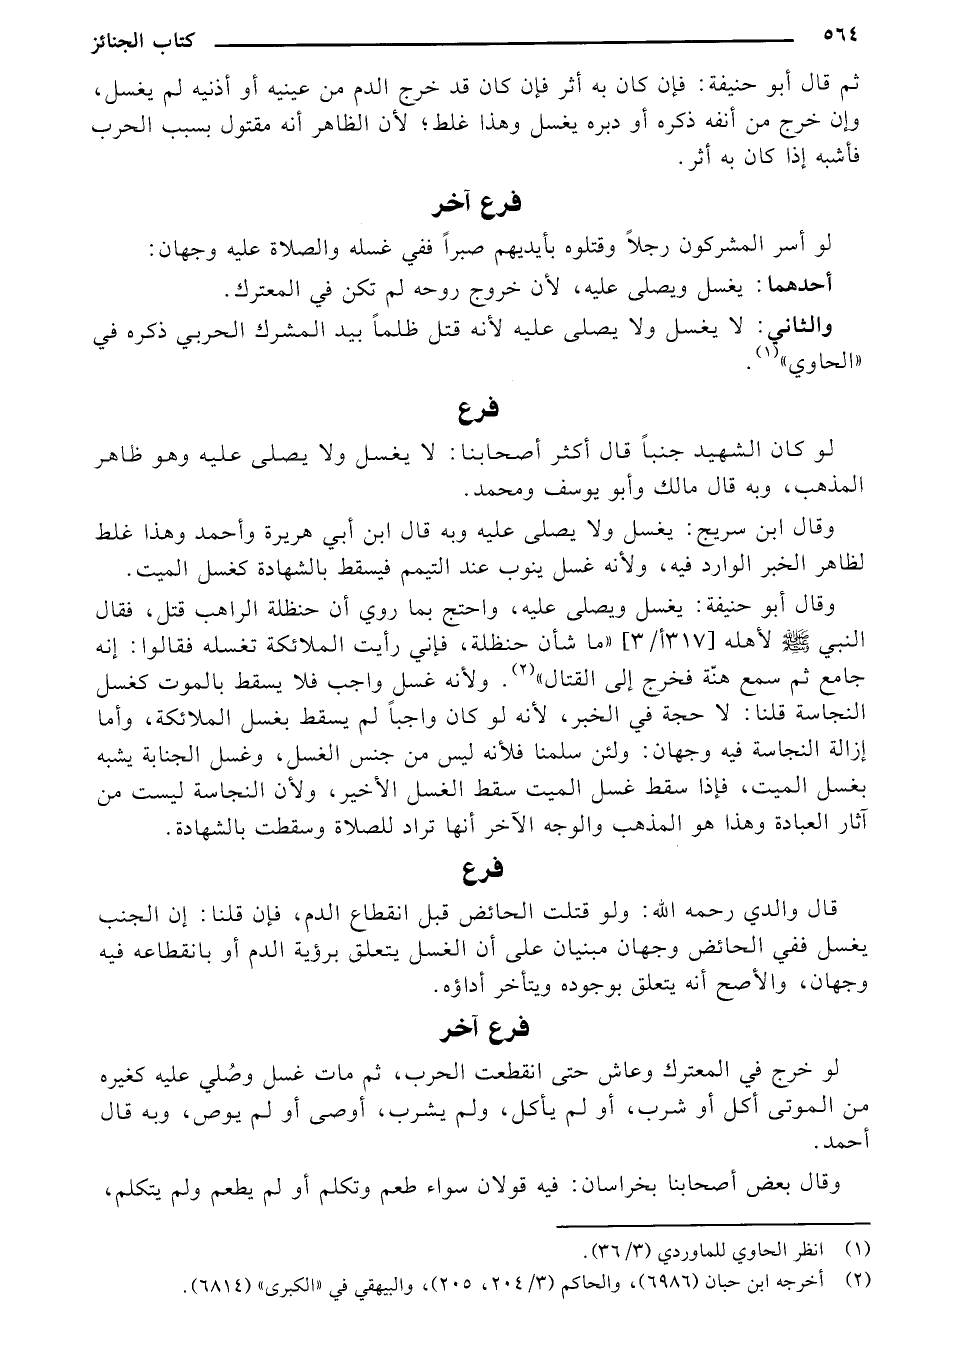 ٥٦٤ كتاب الجنائز
ثم قال أبو حنيفة: فإن كان به أثر فإن كان قد خرج الدم من عينيه أو أذنيه لم يغسل،
وإن خرج من أنفه ذكره أو دبره يغسل وهذا غلط؛ لأن الظاهر أنه مقتول بسبب الحرب
فأشبه إذا كان به أثر.
فرع آخر
لو أسر المشركون رجلاً وقتلوه بأيديهم صبراً ففي غسله والصلاة عليه وجهان:
أحدهما: يغسل ويصلى عليه، لأن خروج روحه لم تكن في المعترك.
والثاني: لا يغسل ولا يصلى عليه لأنه قتل ظلماً بيد المشرك الحربي ذكره في
«الحاوي»(١).
فرع
لو كان الشهيد جنباً قال أكثر أصحابنا: لا يغسل ولا يصلى عليه وهو ظاهر
المذهب، وبه قال مالك وأبو يوسف ومحمد.
وقال ابن سريج: يغسل ولا يصلى عليه وبه قال ابن أبي هريرة وأحمد وهذا غلط
لظاهر الخبر الوارد فيه، ولأنه غسل ينوب عند التيمم فيسقط بالشهادة كغسل الميت.
وقال أبو حنيفة: يغسل ويصلى عليه، واحتج بما روي أن حنظلة الراهب قتل، فقال
النبي ﷺ لأهله [٣١٧أ/ ٣] «ما شأن حنظلة، فإني رأيت الملائكة تغسله فقالوا: إنه
جامع ثم سمع هنّة فخرج إلى القتال»(٢). ولأنه غسل واجب فلا يسقط بالموت كغسل
النجاسة قلنا: لا حجة في الخبر، لأنه لو كان واجباً لم يسقط بغسل الملائكة، وأما
إزالة النجاسة فيه وجهان: ولئن سلمنا فلأنه ليس من جنس الغسل، وغسل الجنابة يشبه
بغسل الميت، فإذا سقط غسل الميت سقط الغسل الأخير، ولأن النجاسة ليست من
آثار العبادة وهذا هو المذهب والوجه الآخر أنها تراد للصلاة وسقطت بالشهادة.
فرع
قال والدي رحمه الله: ولو قتلت الحائض قبل انقطاع الدم، فإن قلنا: إن الجنب
يغسل ففي الحائض وجهان مبنيان على أن الغسل يتعلق برؤية الدم أو بانقطاعه فيه
وجهان، والأصح أنه يتعلق بوجوده ويتأخر أداؤه.
فرع آخر
لو خرج في المعترك وعاش حتى انقطعت الحرب، ثم مات غسل وصُلي عليه كغيره
من الموتى أكل أو شرب، أو لم يأكل، ولم يشرب، أوصى أو لم يوص، وبه قال
أحمد.
وقال بعض أصحابنا بخراسان: فيه قولان سواء طعم وتكلم أو لم يطعم ولم يتكلم،
(١) انظر الحاوي للماوردي (٣/ ٣٦).
(٢) أخرجه ابن حبان (٦٩٨٦)، والحاكم (٣/ ٢٠٤، ٢٠٥)، والبيهقي في «الكبرى» (٦٨١٤).